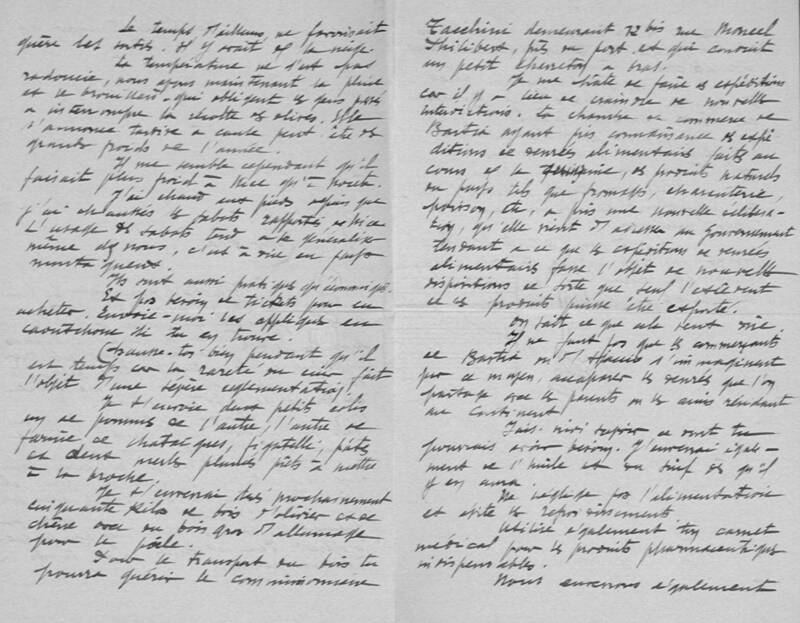 Le temps, d'ailleurs, ne favorisait
guère les sorties. Il y avait de la neige.
La température ne s'est pas
radoucie, nous avons maintenant la pluie
et le brouillard qui obligent les gens
à interrompre la récolte des olives. Elle
s'annonce tardive à cause peut être des
grands froids de l'année.
Il me semble cependant qu'il
faisait plus froid à Nice qu'à
J'ai chaud aux pieds depuis que
j'ai chaussés les sabots rapportés de Nice
L'usage des sabots tend à se généraliser
même chez nous, c'est à dire en pays
montagneux.
Ils sont aussi pratiques qu'économiques.
Et pas besoin de tickets pour en
acheter. Envoie-moi des appliques en
caoutchouc si tu en trouve.
Chausse-toi bien pendant qu'il
est temps car la rareté du cuir fait
l'objet d'une sévère réglementation.
Je t'envoie deux petits colis
un de pommes et l'autre, l'autre de
farine de chataignes, figatelli, pâtés
et deux merles plumés prêts à mettre
à la broche.
Je t'enverrai très prochainement
cinquante kilos de bois d'olivier et de
chêne avec du bois gras d'allumage
pour le poële.
Pour le transport du bois tu
pourra quérir le commissionnaire
Tacchini demeurant 12 bis rue
Philibert, près du port et qui conduit
un petit charreton à bras.
Je me hâte de faire ces expéditions
car il y a lieu de craindre de nouvelles
interdictions. La chambre de commerce de
Bastia ayant pris connaissance des expé
ditions de denrées alimentaires faites au
cours de la semaine, de produits naturels
du pays tels que fromages, charcuterie,
poisson, etc, a pris une nouvelle délibéra-
tion, qu'elle vient d'adresser au Gouvernement
tendant à ce que les expéditions de denrées
alimentaires fasse l'objet de nouvelles
dispositions de sorte que seul l'excédent
de ces produits puisse être exporté.
On sait ce que cela veut dire.
Il ne faut pas que les commerçants
de Bastia ou d'Ajaccio s'imaginent
par ce moyen, accaparer les denrées que l'on
partage avec les parents ou les amis résidant
au Continent.
Fais-moi savoir ce dont tu
pourrais avoir besoin. J'enverrai égale-
ment de l'huile et du suif dès qu'il
y en aura.
Ne néglige pas l'alimentation
et évite les refroidissements.
Utilise également ton carnet
médical pour les produits pharmaceutiques
indispensables.
Nous enverrons également